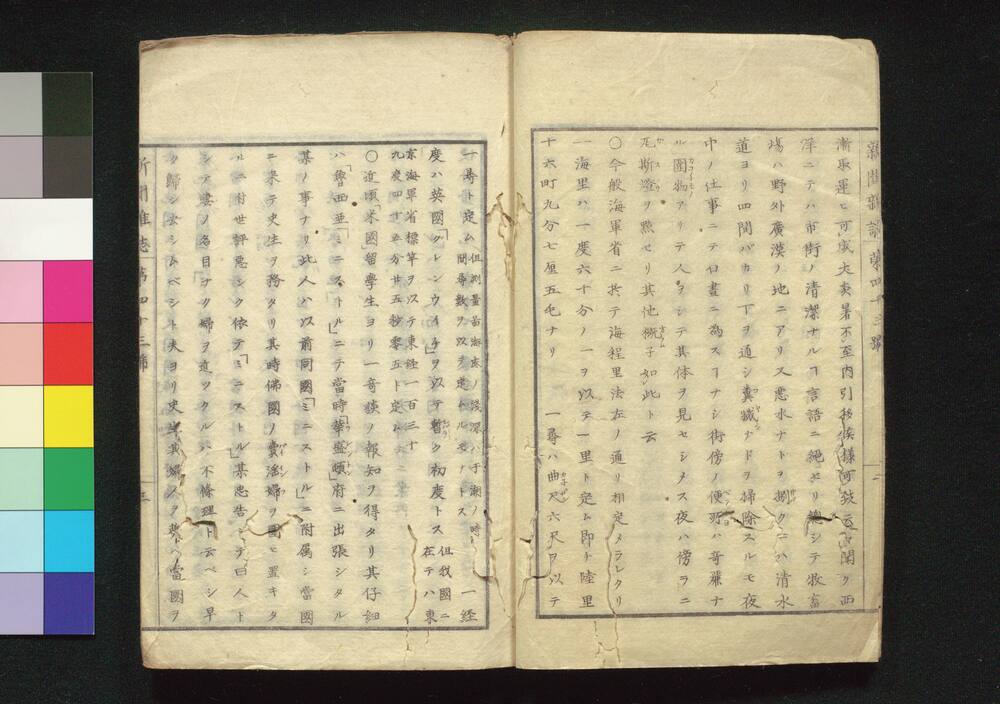 新聞雜誌 第四十三號 二
漸取運ヒ可成丈炎暑不至内引移候様可致云々聞ク西
洋ニテハ市街ノ清潔ナルヿ言語ニ絶セリ総シテ牧畜
場ハ野外廣漠ノ地ニアリ又悪水ナトヲ捌クニハ清水
道ヨリ四間バカリ下ヲ通シ糞穢ナドヲ掃除スルモ夜
中ノ仕事ニテ白晝ニ為スヿナシ街傍ノ便所ハ奇麗ナ
ル圍物アリテ人ヲシテ其体ヲ見セシメス夜ハ傍ラニ
瓦斯燈ヲ點セリ其他概子如此ト云
〇今般海軍省ニ於テ海程里法左ノ通リ相定メラレタリ
一海里ハ一度六十分ノ一ヲ以テ一里ト定ム即チ陸里
十六町九分七厘五毛ナリ 一尋ハ曲尺六尺ヲ以テ
一尋ト定ム 但測量苗海底ノ浅深ハ干潮ノ時
間尋數ヲ以テ定ムルモノトス 一経
度ハ英國「グレンウイチ」ヲ以テ暫ク初度トス 但我國ニ
在テハ東
京海軍省標竿ヲ以テ東経一百三十
九度四十五分廿五秒零五ト定ム
〇近頃米國留學生ヨリ一奇談ノ報知ヲ得タリ其仔細
ハ「魯西亜」「ミニストル」ニテ當時「華盛頓」府ニ出張シタル
某ノ事ナリ此人ハ以前同國「ミニストル」ニ附属シ當國
ニ来テ史生ヲ務タリ其時佛國ノ賣淫婦ヲ國ヒ置キタ
ルニ付世評悪シク依テ「ミニストル」某忠告シテ曰人ト
シテ妻ノ名目ナク婦ヲ道ツクルハ不條理ト云ベシ早
ク歸シ去ラシムベシト夫ヨリ史生其婦 當國ヲ
新聞雜誌 第四十三號 三